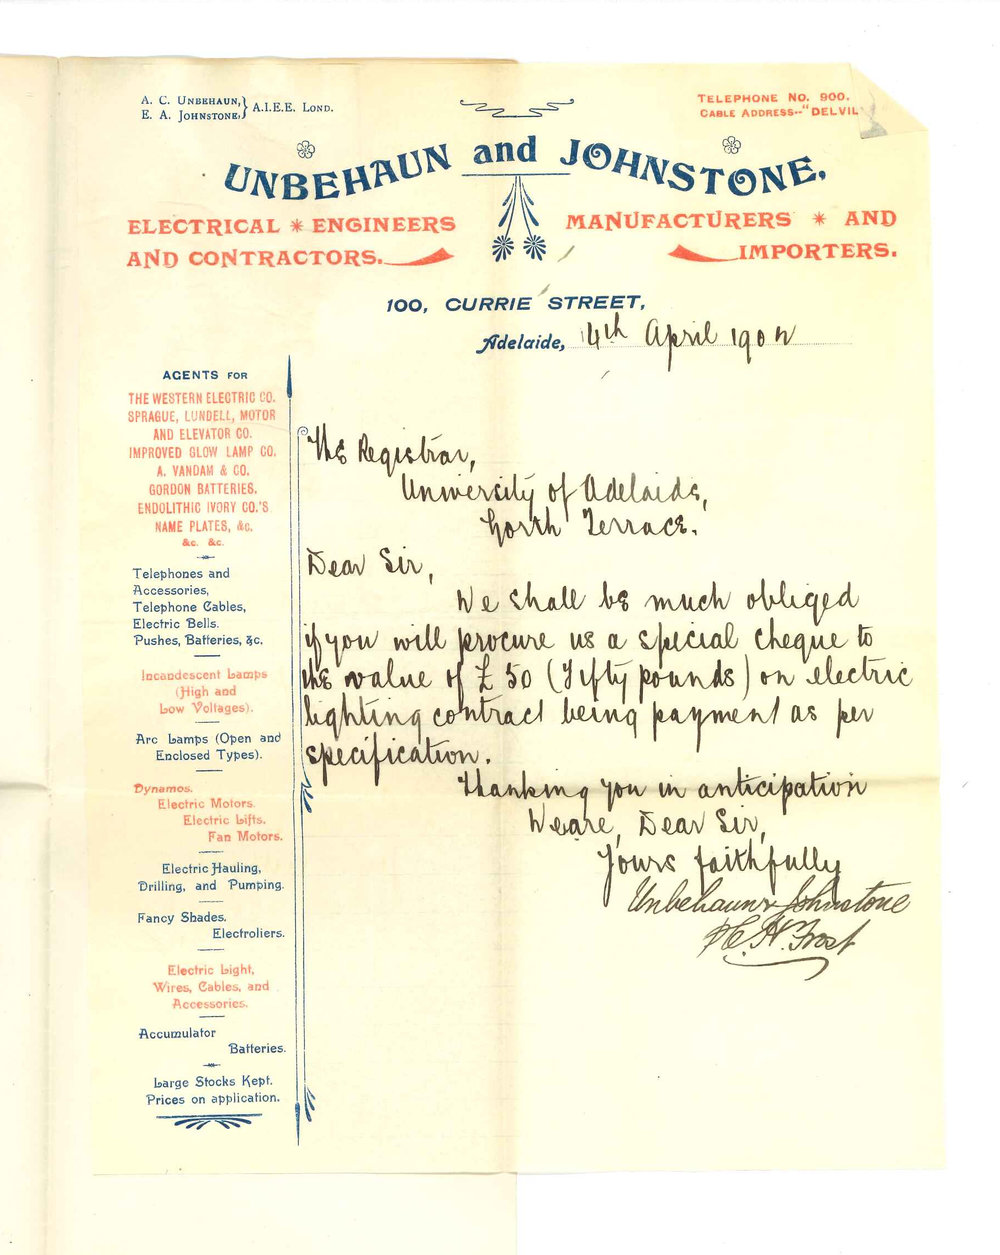 A. C. UNBEHAUN,
E. A. JOHNSTONE,} A.I.E.E. LOND.
TELEPHONE NO. 900.
CABLE ADDRESS--"DELVIL
UNBEHAUN and JOHNSTONE,
ELECTRICAL * ENGINEERS
AND CONTRACTORS.
MANUFACTURERS * AND
IMPORTERS.
100, CURRIE STREET,
Adelaide, 14th April 190
AGENTS FOR
THE WESTERN ELECTRIC CO.
SPRAGUE, LUNDELL, MOTOR
AND ELEVATOR CO.
IMPROVED GLOW LAMP CO.
A. VANDAM & CO.
GORDON BATTERIES.
ENDOLITHIC IVORY CO.'S
NAME PLATES, &c.
&c. &c.
Telephones and
Accessories,
Telephone Cables,
Electric Bells.
Pushes, Batteries, &c.
Incandescent Lamps
(High and
Low Voltages).
Arc Lamps (Open and
Enclosed Types).
Dynamos.
Electric Motors.
Electric Lifts.
Fan Motors.
Electric Hauling,
Drilling, and Pumping.
Fancy Shades.
Electroliers.
Electric Light,
Wires, Cables, and
Accessories.
Accumulator
Batteries.
Large Stocks Kept.
Prices on application.
The Registrar,
University of Adelaide,
North Terrace.
Dear Sir,
We shall be much obliged
if you will procure us a special cheque to
the value of £50 (Fifty pounds) on electric
lighting contract being payment as per
specification.
Thanking you in anticipation
We are, Dear Sir,
Yours faithfully
Unbehaun & Johnstone
H. Frost